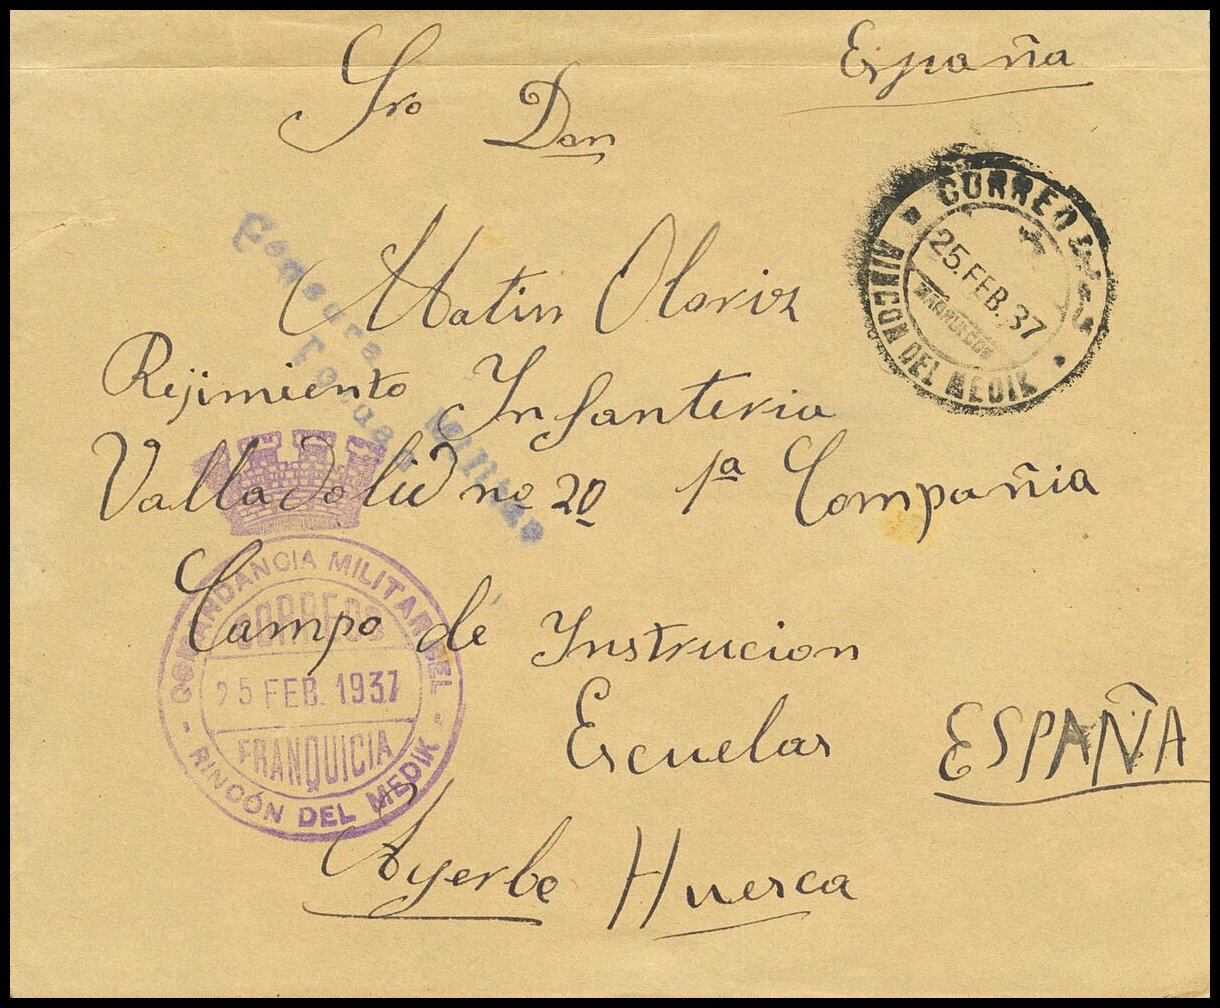 España
Sro Don
CORREO
25.FEB.37
MARRUECOS
RINCON DEL MEDIK
Censura Militar
Tetuan
Matin Olariz
Rejimiento Infanteria
Valladolid nº 20 1ª Compañia
COMANDANCIA MILITAR DEL
CORREOS
25 FEB. 1937
FRANQUICIA
- RINCÓN DEL MEDIK -
Campo de Instrucion
Escuelas ESPAÑA
Ayerbe Huesca